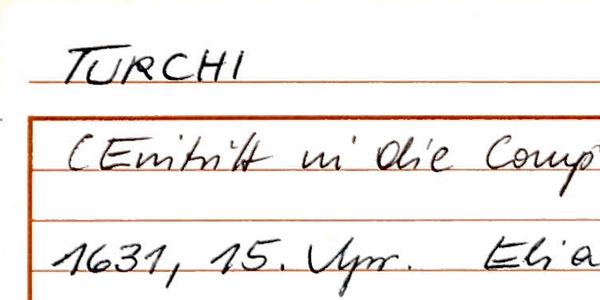 TURCHI
(Eintritt in die Comp
1631, 15. Apr. Elia